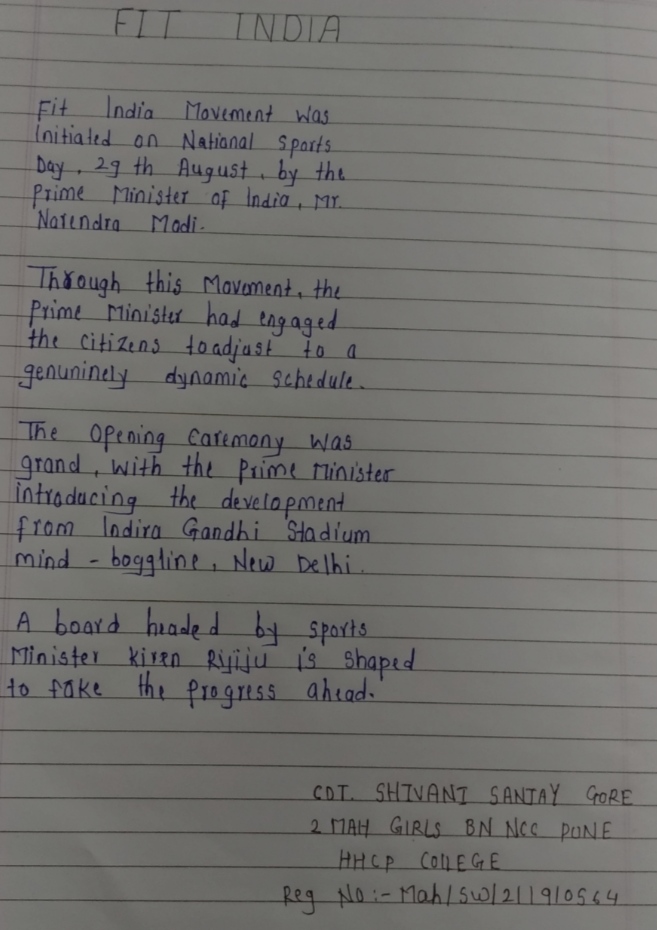 FIT INDIA
Fit India Movement was
Initiated on National Sports
Day, 29 th August, by the
Prime Minister of India, Mr.
Narendra Modi.
Through this Movement, the
Prime Minister had engaged
the citizens toadjust to a
genuninely dynamic schedule.
The Opening Caremony was
grand, with the Prime Minister
introducing the development
from Indira Gandhi Stadium
mind - boggline, New Delhi.
A board headed by sports
Minister Kiren Rijiju is shaped
to take the progress ahead.
CDT. SHIVANI SANJAY GORE
2 MAH GIRLS BN NCC PUNE
HHCP COllEGE
Reg No:- Mah/SW/211910564